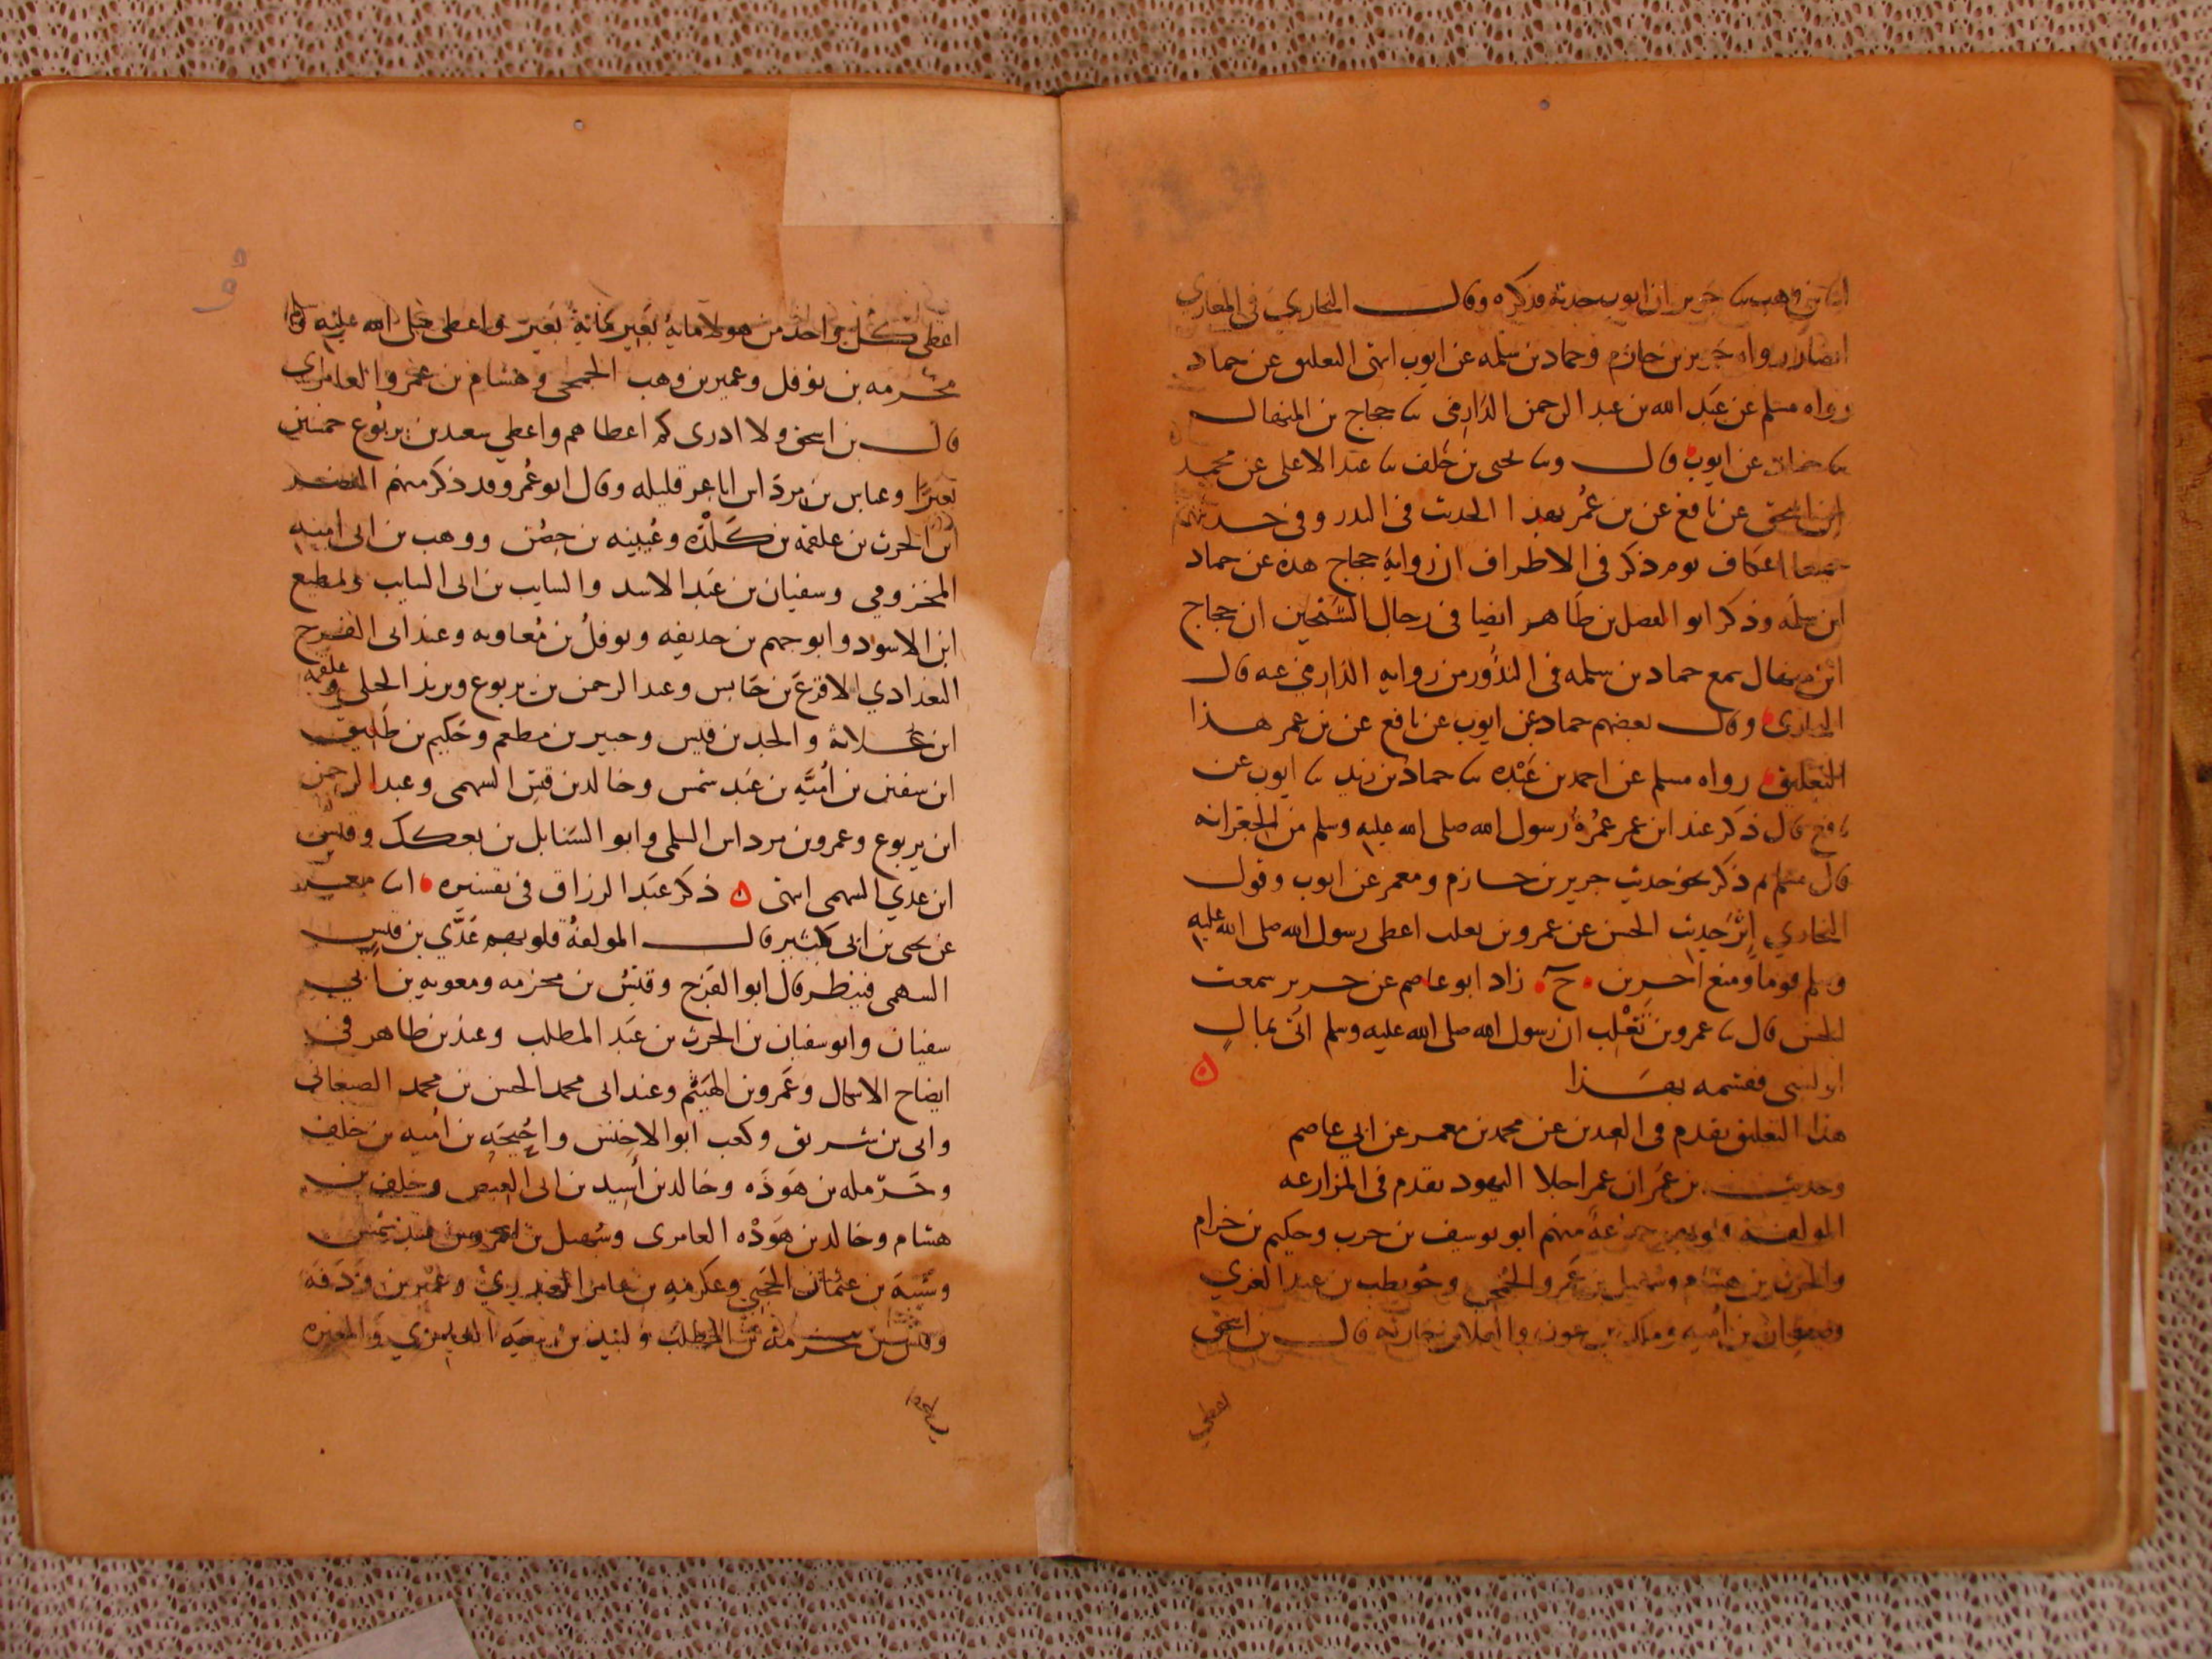 ابنا بن وهب سا جرير ان ايوب حدثه فذكره وقال البخاري في المغازي
ايضا رواه جرير بن حازم وحماد بن سلمه عن ايوب انتهى التعليق عن حماد
رواه مسلم عن عبد الله بن عبد الرحمن الدارمي سا حجاج بن المنهال
سا حماد عن ايوب قال وسا يحيى بن خلف سا عبد الاعلى عن محمد
ابن اسحق عن نافع عن بن عمر بهذا الحديث في النذر وفي حديثهم
جميعا اعتكاف يوم ذكر في الاطراف ان رواية حجاج هذه عن حماد
ابن سلمه وذكر ابو الفضل بن طاهر ايضا في رجال الشيخين ان حجاج
ابن منهال سمع حماد بن سلمه في النذور من روايه الدارمي عنه قال
البخاري وقال بعضهم حماد عن ايوب عن نافع عن بن عمر هذا
التعليق رواه مسلم عن احمد بن عبده سا حماد بن زيد سا ايوب عن
نافع قال ذكر عند ابن عمر عمرة رسول الله صلى الله عليه وسلم من الجعرانه
قال مسلم ثم ذكر نحو حديث جرير بن حازم ومعمر عن ايوب وقول
البخاري اثر حديث الحسن عن عمرو بن تغلب اعطى رسول الله صلى الله عليه
وسلم قوما ومنع اخرين ح زاد ابو عاصم عن جرير سمعت
الحسن قال سا عمرو بن تغلب ان رسول الله صلى الله عليه وسلم اتى بمال
او بسبي فقسمه بهذا ه
هذا التعليق تقدم في العيدين عن محمد بن معمر عن ابي عاصم
وحديث بن عمر ان عمر اجلا اليهود تقدم في المزارعه
المولفة قلوبهم جماعة منهم ابو يوسف بن حرب وحكيم بن حزام
والحرث بن هشام وسهيل بن عمرو الجمحي وحويطب بن عبد العزي
وصفوان بن اميه ومالك بن عوف والعلا بن جارية قال بن اسحق
اعطي
اعطى كل واحد من هولا ماية بعير ماية بعير واعطى صلى الله عليه وسلم
مخرمه بن نوفل وعمير بن وهب الجمحي وهشام بن عمرو العامري
قال بن اسحق ولا ادري كم اعطاهم واعطي سعد بن يربوع خمسين
بعيرا وعباس بن مرداس اباعر قليله وقال ابو عمرو قد ذكر منهم النضير
ابن الحرث بن علقمه بن كلدة وعيينه بن حصن ووهب بن ابي اميه
المخزومي وسفيان بن عبد الاسد والسايب بن ابي السايب ومطيع
ابن الاسود وابو جهم بن حذيفه ونوفل بن معاويه وعند ابي الفرج
البغدادي الاقرع بن حابس وعبد الرحمن بن يربوع وبرند الحلي وعلقمه
ابن علاثة والجد بن قيس وجبير بن مطعم وحكيم بن طليق
ابن سفين بن امية بن عبد شمس وخالد بن قيس السهمي وعبد الرحمن
ابن يربوع وعمرو بن مرداس السلمي وابو السنابل بن بعكك وقيس
ابن عدي السهمى انتهى ه ذكر عبد الرزاق في تفسيره انا معمر
عن يحيى بن ابي كثير قال المولفة قلوبهم عدي بن قيس
السهمي فينظر قال ابو الفرج وقيس بن مخرمه ومعويه بن ابي
سفيان وابو سفيان بن الحرث بن عبد المطلب وعند بن طاهر في
ايضاح الاشكال وعمرو بن الهيثم وعند ابي محمد الحسن بن محمد الصغاني
وابي بن شريق وكعب ابو الاخنس واحيحة بن اميه بن خلف
وحرمله بن هوذه وخالد بن اسيد بن ابي العيص وخلف بن
هشام وخالد بن هوذه العامري وسهيل بن عمرو بن عبد شمس
وشيبة بن عثمان الحجبي وعكرمه بن عامر العبدري وعمير بن ودقة
وقيس بن مخرمة بن المطلب ولبيد بن ربيعه العامري والمغيره